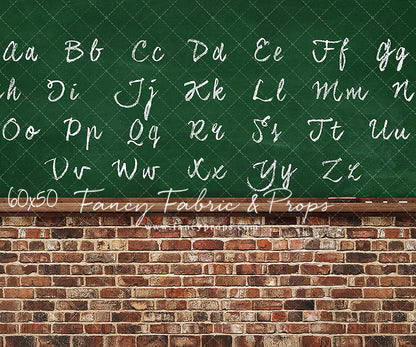 Aa Bb Cc Dd Ee Ff Gg
h Ii Jj Kk Ll Mm N
Oo Pp Qq Rr Ss Tt Uu
Vv Ww Xx Yy Zz
60x50 Fancy Fabric & Props